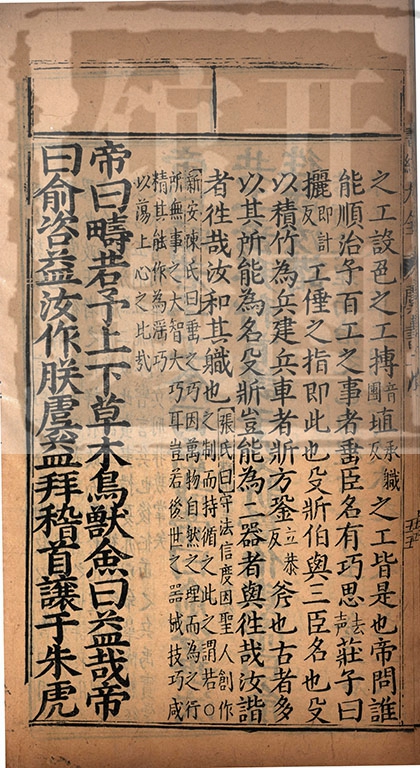 之工設色之工摶音團埴承職反之工皆是也帝問誰
能順治予百工之事者垂臣名有巧思去声莊子曰
攦即計反工倕之指即此也殳斨伯與三臣名也殳
以積竹為兵建兵車者斨方銎立恭反斧也古者多
以其所能為名殳斨豈能為二器者與徃哉汝諧
者徃哉汝和其職也張氏曰守法信度因聖人創作之制而持循之此之謂若○
新安陳氏曰垂之巧因萬物自然之理而為之行所無事之大智大巧耳豈若後世之器械技巧咸
精其能作為滛巧以蕩上心之比哉
帝曰疇若予上下草木鳥獸僉曰益哉帝
曰俞咨益汝作朕虞益拜稽首讓于朱虎